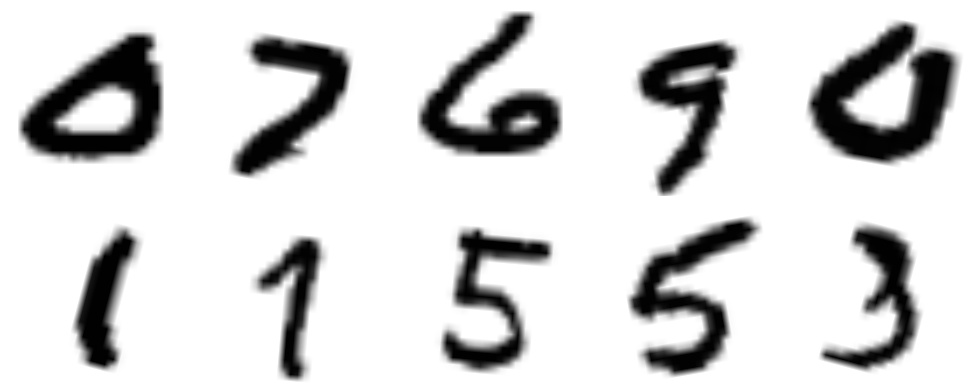 0 7 6 9 0
1 1 5 5 3